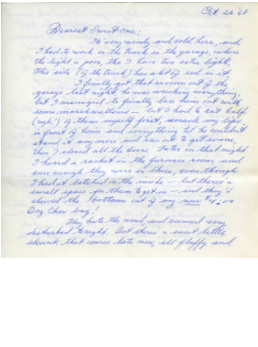 Oct 26 '68
Dearest Sweet one;
It's very windy and cold here, and
I had to work on the truck in the garage where
the light is poor, tho I have two extra lights.
This side of the truck has a lot of rust in it.
I finally got that raccoon out of the
garage last night. He was wrecking everything,
but I managed to finally lure him out with
some marshmallows — but I had to eat half
(ugh) of them myself first, smack my lips
in front of him and everything til he couldn't
stand it any more and ran out to get some,
then I closed all the doors. Later on that night
I heard a racket in the furnace room and
sure enough they were in there, even though
I had it latched on the inside — but there's a
small space for them to get in — and they'd
chewed the bottom out of my new
Dog Chow bag!
They hate the wind, and seemed very
disturbed tonight. But there's a sweet little
skunk that comes late now all fluffy and